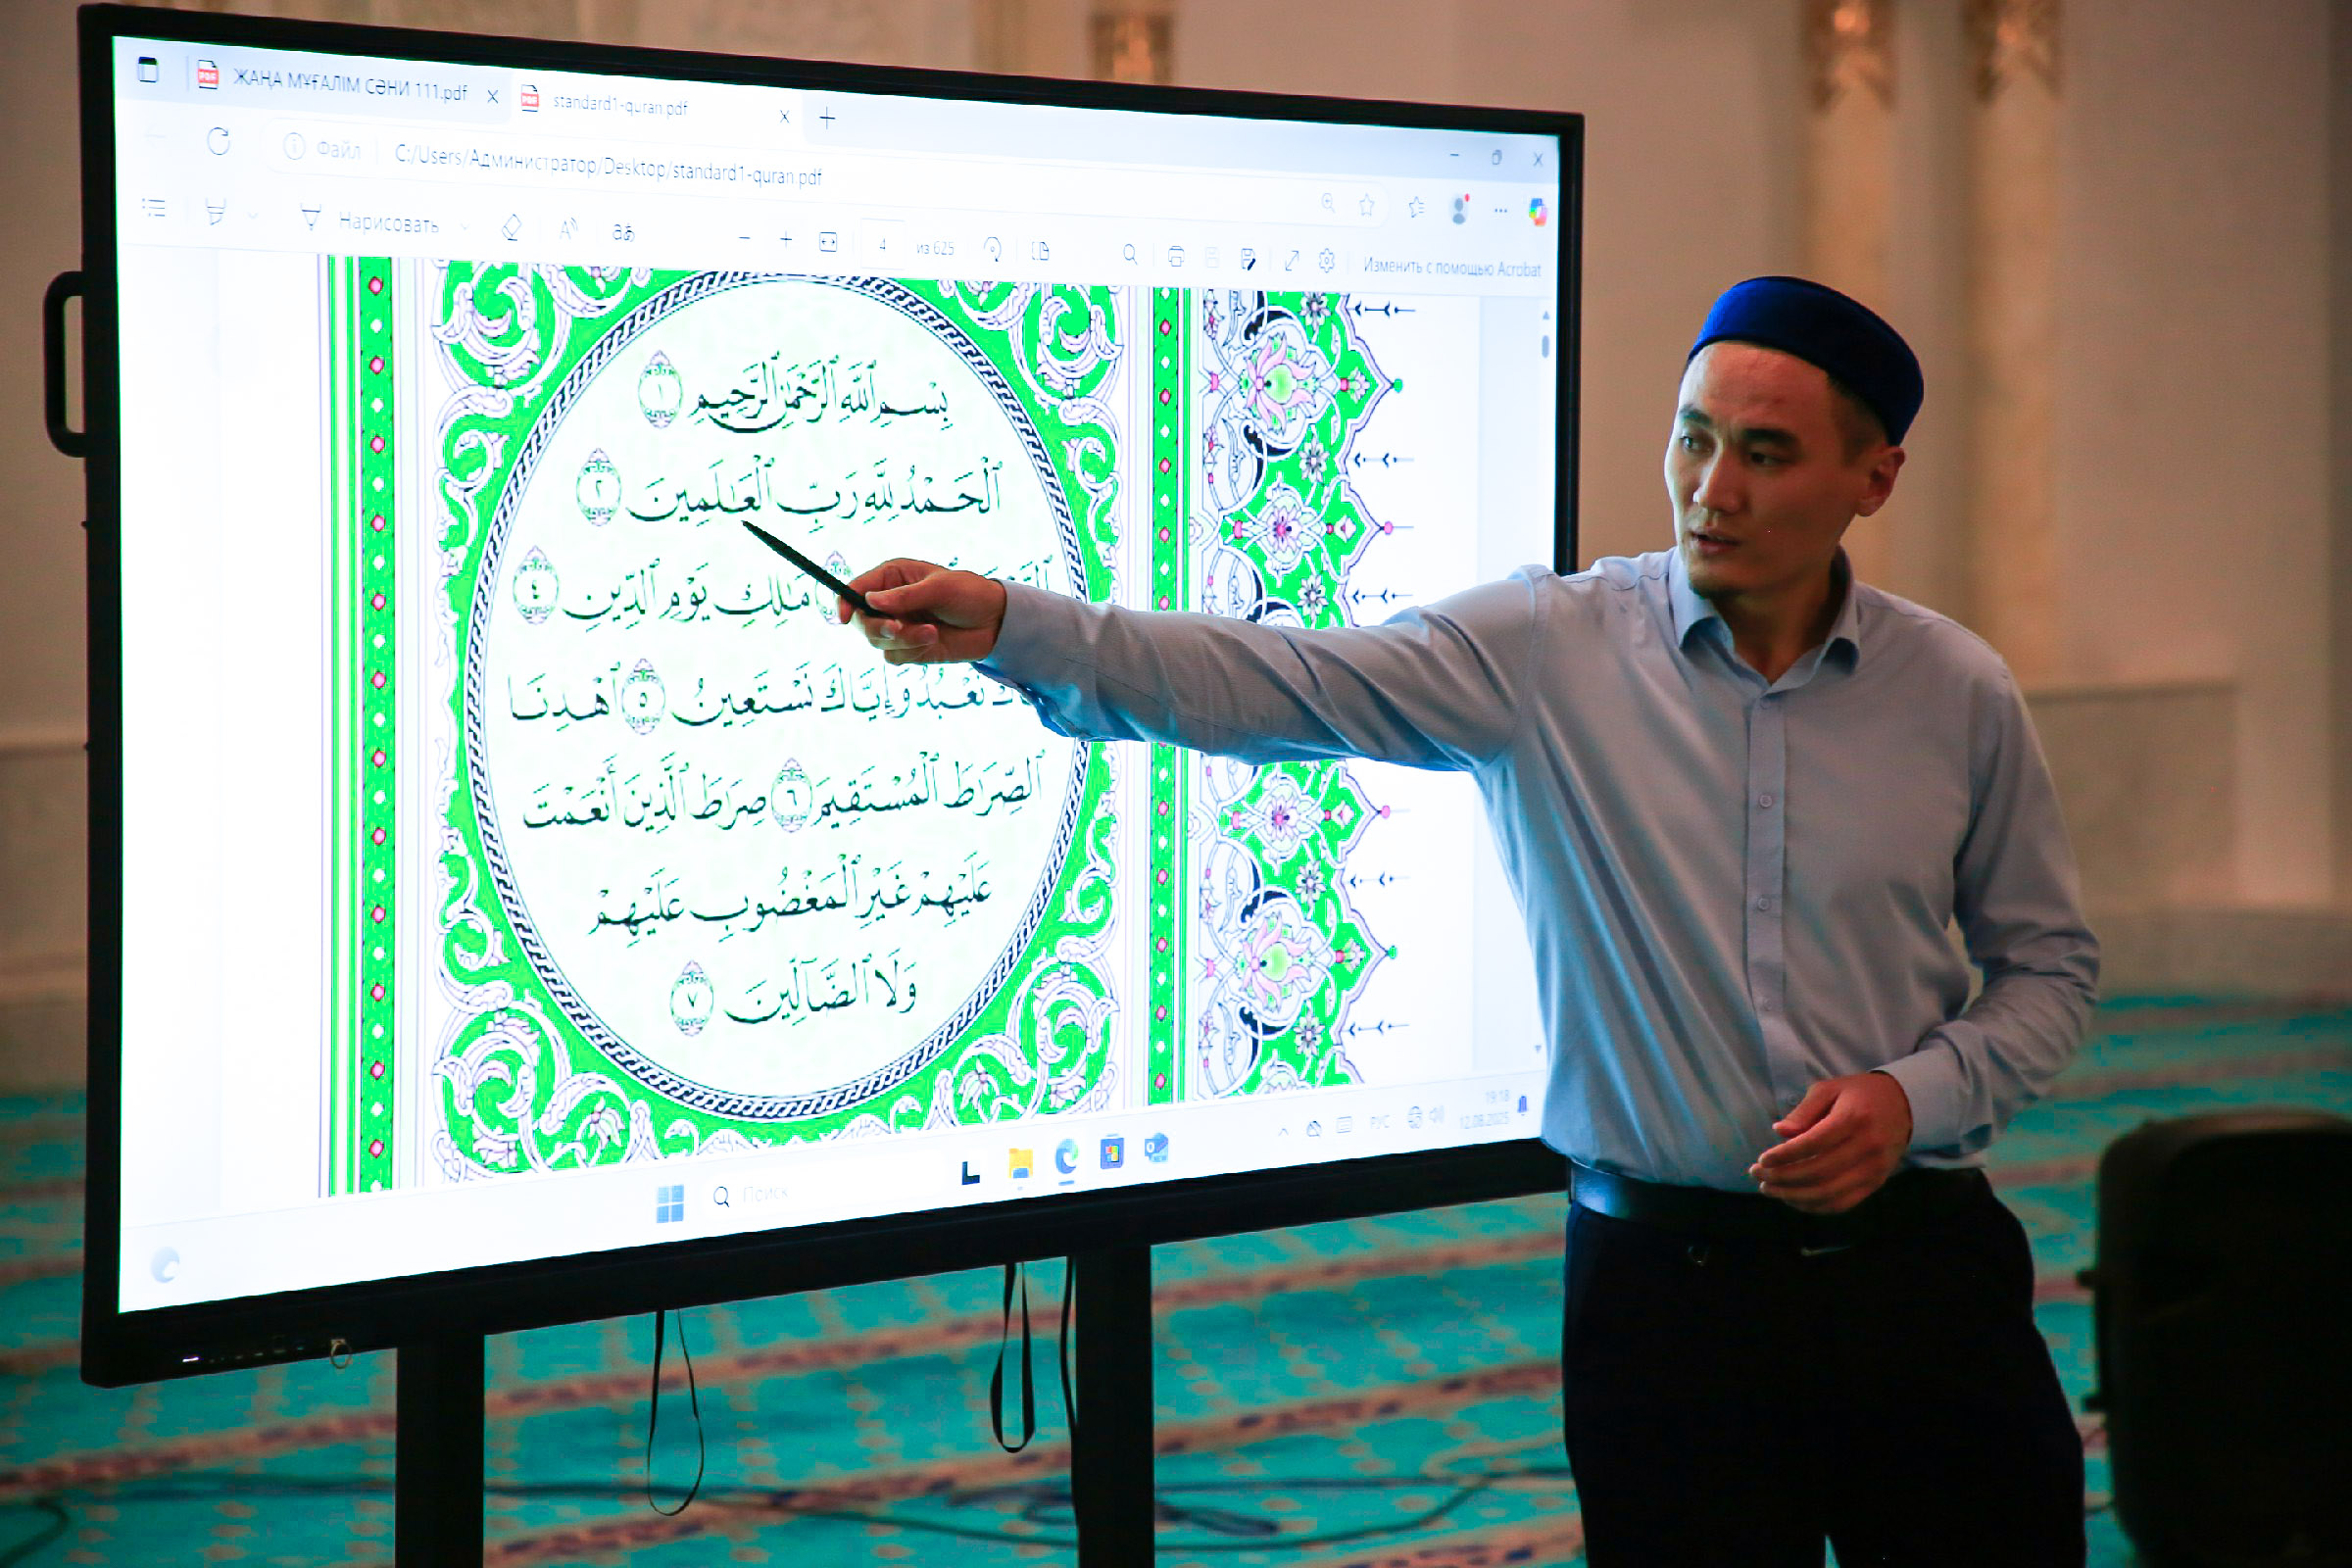 ЖАҢА МҰҒАЛІМ СӘНИ 111.pdf
standard1-quran.pdf
Файл
C:/Users/Администратор/Desktop/standard1-quran.pdf
Нарисовать
4 из 625
Изменить с помощью Acrobat
بِسْمِ ٱللَّهِ ٱلرَّحْمَٰنِ ٱلرَّحِيمِ ١
ٱلْحَمْدُ لِلَّهِ رَبِّ ٱلْعَٰلَمِينَ ٢
مَٰلِكِ يَوْمِ ٱلدِّينِ ٤
نَعْبُدُ وَإِيَّاكَ نَسْتَعِينُ ٥ ٱهْدِنَا
ٱلصِّرَٰطَ ٱلْمُسْتَقِيمَ ٦ صِرَٰطَ ٱلَّذِينَ أَنْعَمْتَ
عَلَيْهِمْ غَيْرِ ٱلْمَغْضُوبِ عَلَيْهِمْ
وَلَا ٱلضَّآلِّينَ ٧
Поиск
РУС
19:18
12.08.2025